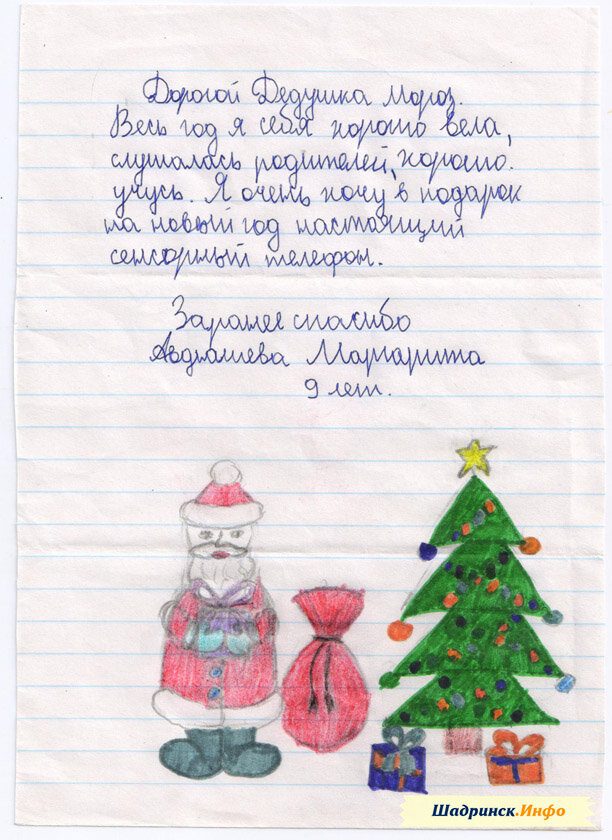 Дорогой Дедушка Мороз.
Весь год я себя хорошо вела,
слушалась родителей, хорошо.
учусь. Я очень хочу в подарок
на новый год настоящий
сенсорный телефон.
Заранее спасибо
Маргарита
9 лет.
Шадринск.Инфо